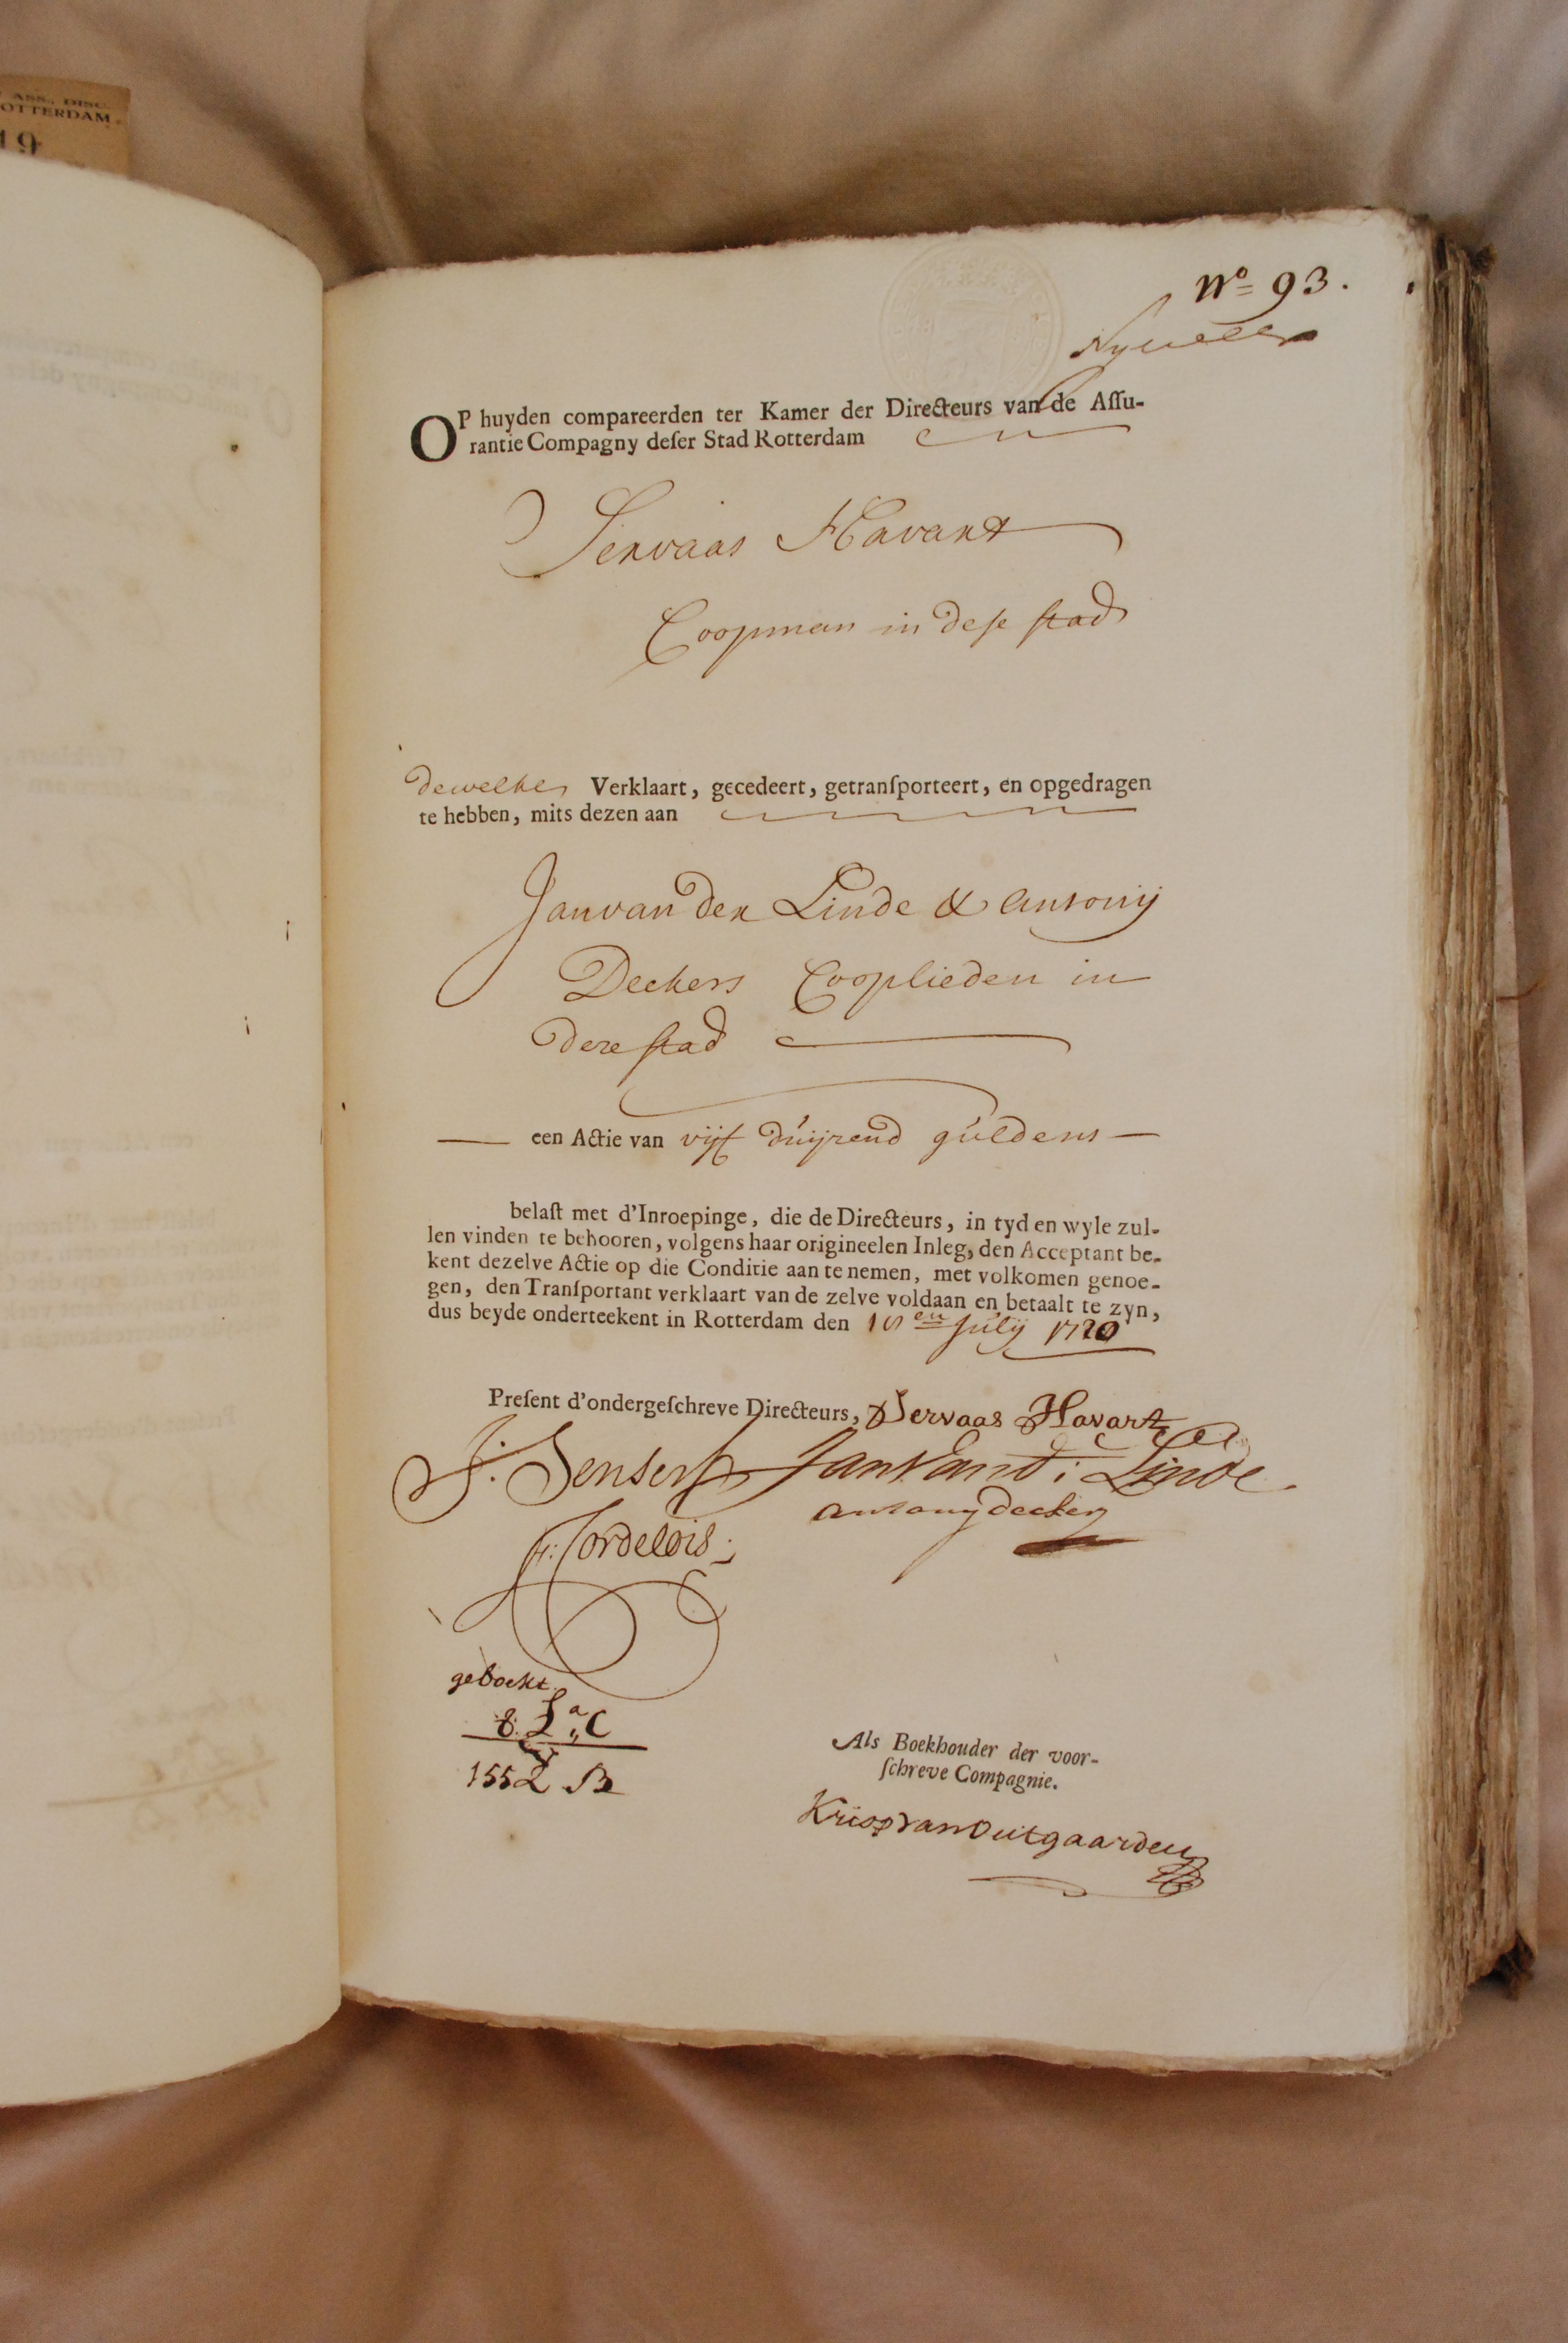 ASS., DISC.
OTTERDAM.
19
No 93.
OP huyden compareerden ter Kamer der Directeurs van de Aſſu-
rantie Compagny deſer Stad Rotterdam
Servaas Havart
Coopman in deſe ſtad
dewelke Verklaart, gecedeert, getranſporteert, en opgedragen
te hebben, mits dezen aan
Jan van der Linde & Antonij
Deckers Cooplieden in
deze ſtad
een Actie van vijf duijzend guldens
belaſt met d'Inroepinge, die de Directeurs, in tyd en wyle zul-
len vinden te behooren, volgens haar origineelen Inleg, den Acceptant be-
kent dezelve Actie op die Conditie aan te nemen, met volkomen genoe-
gen, den Tranſportant verklaart van de zelve voldaan en betaalt te zyn,
dus beyde onderteekent in Rotterdam den en July 1720
Preſent d'ondergeſchreve Directeurs, Servaas Havart
Jan Van d: Linde
antony decker
geboekt
La C
1552 B
Als Boekhouder der voor-
ſchreve Compagnie.